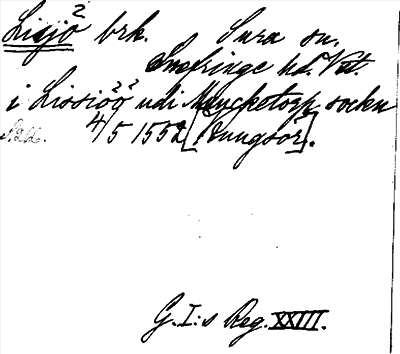 Lisjö² brk. Sura sn.
Snefringe hd. Vstm.
i Lissiöö² ² udi Munchetorp socken
4/5 1552 [Kungsör].
G. I:s Reg. XXIII.